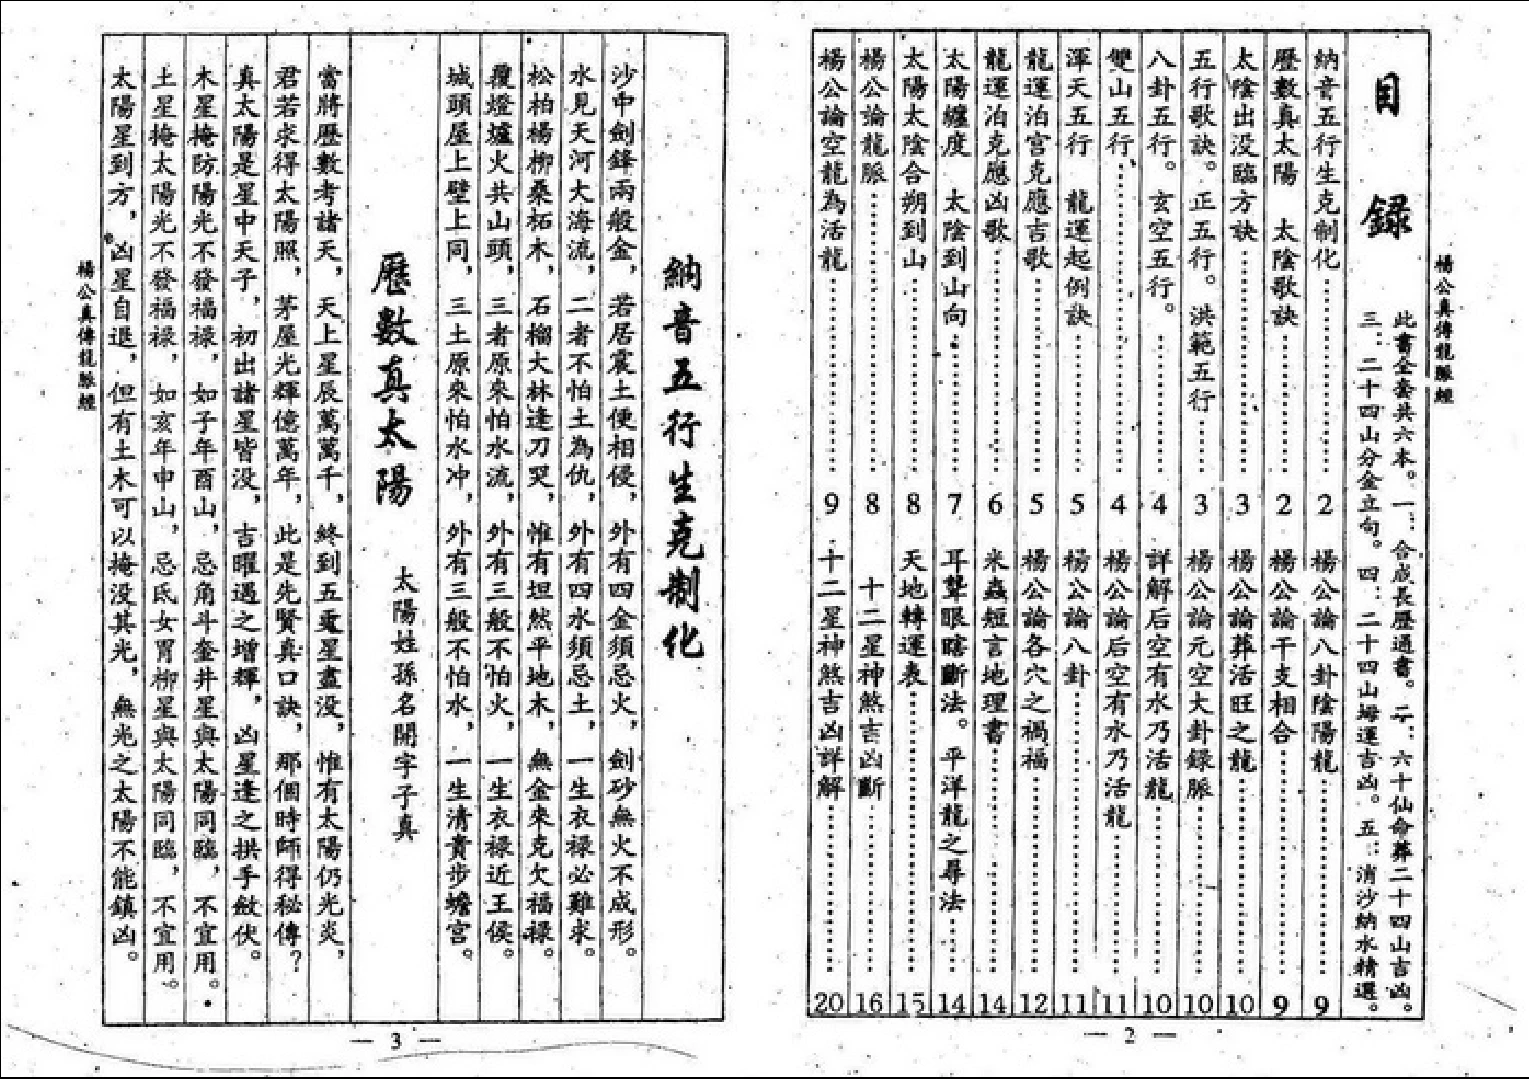 楊公真傳龍脈經
目錄
此書全套共六本。一：合成長歷通書。二：六十仙命葬二十四山吉凶。
三：二十四山分金立句。四：二十四山坶運吉凶。五：消沙納水精選。
納音五行生克制化……2 楊公論八卦陰陽龍……9
歷數真太陽 太陰歌訣……2 楊公論干支相合……9
太陰出没臨方訣……3 楊公論葬活旺之龍……10
五行歌訣。正五行。洪範五行……3 楊公論元空大卦錄脈……10
八卦五行。玄空五行。……4 詳解后空有水乃活龍……10
雙山五行……4 楊公論后空有水乃活龍……11
渾天五行 龍運起例訣……5 楊公論八卦……11
龍運泊宮克應吉歌……5 楊公論各穴之禍福……12
龍運泊克應凶歌……6 米蟲短言地理書……14
太陽纏度 太陰到山向……7 耳聾眼瞎斷法。平洋龍之尋法……14
太陽太陰合朔到山……8 天地轉運表……15
楊公論龍脈……8 十二星神煞吉凶斷……16
楊公論空龍為活龍……9 十二星神煞吉凶詳解……20
— 2 —
納音五行生克制化
沙中劍鋒兩般金，若居震土便相侵，外有四金須忌火，劍砂無火不成形。
水見天河大海流，二者不怕土為仇，外有四水須忌土，一生衣祿必難求。
松柏楊柳桑柘木，石榴大林逢刀哭，惟有坦然平地木，無金來克欠福祿。
覆燈爐火共山頭，三者原來怕水流，外有三般不怕火，一生衣祿近王侯。
城頭屋上壁上同，三土原來怕水冲，外有三般不怕水，一生清貴步蟾宮。
歷數真太陽 太陽姓孫名開字子真
當將歷數考諸天，天上星辰萬萬千，終到五更星盡没，惟有太陽仍光炎，
君若求得太陽照，茅屋光輝億萬年，此是先賢真口訣，那個時師得秘傳？
真太陽是星中天子，初出諸星皆没，吉曜遇之增輝，凶星逢之拱手斂伏。
木星掩防陽光不發福祿，如子年酉山，忌角斗奎井星與太陽同臨，不宜用。
土星掩太陽光不發福祿，如亥年申山，忌氐女胃柳星與太陽同臨，不宜用。
太陽星到方，凶星自退，但有土木可以掩没其光，無光之太陽不能鎮凶。
楊公真傳龍脈經
— 3 —